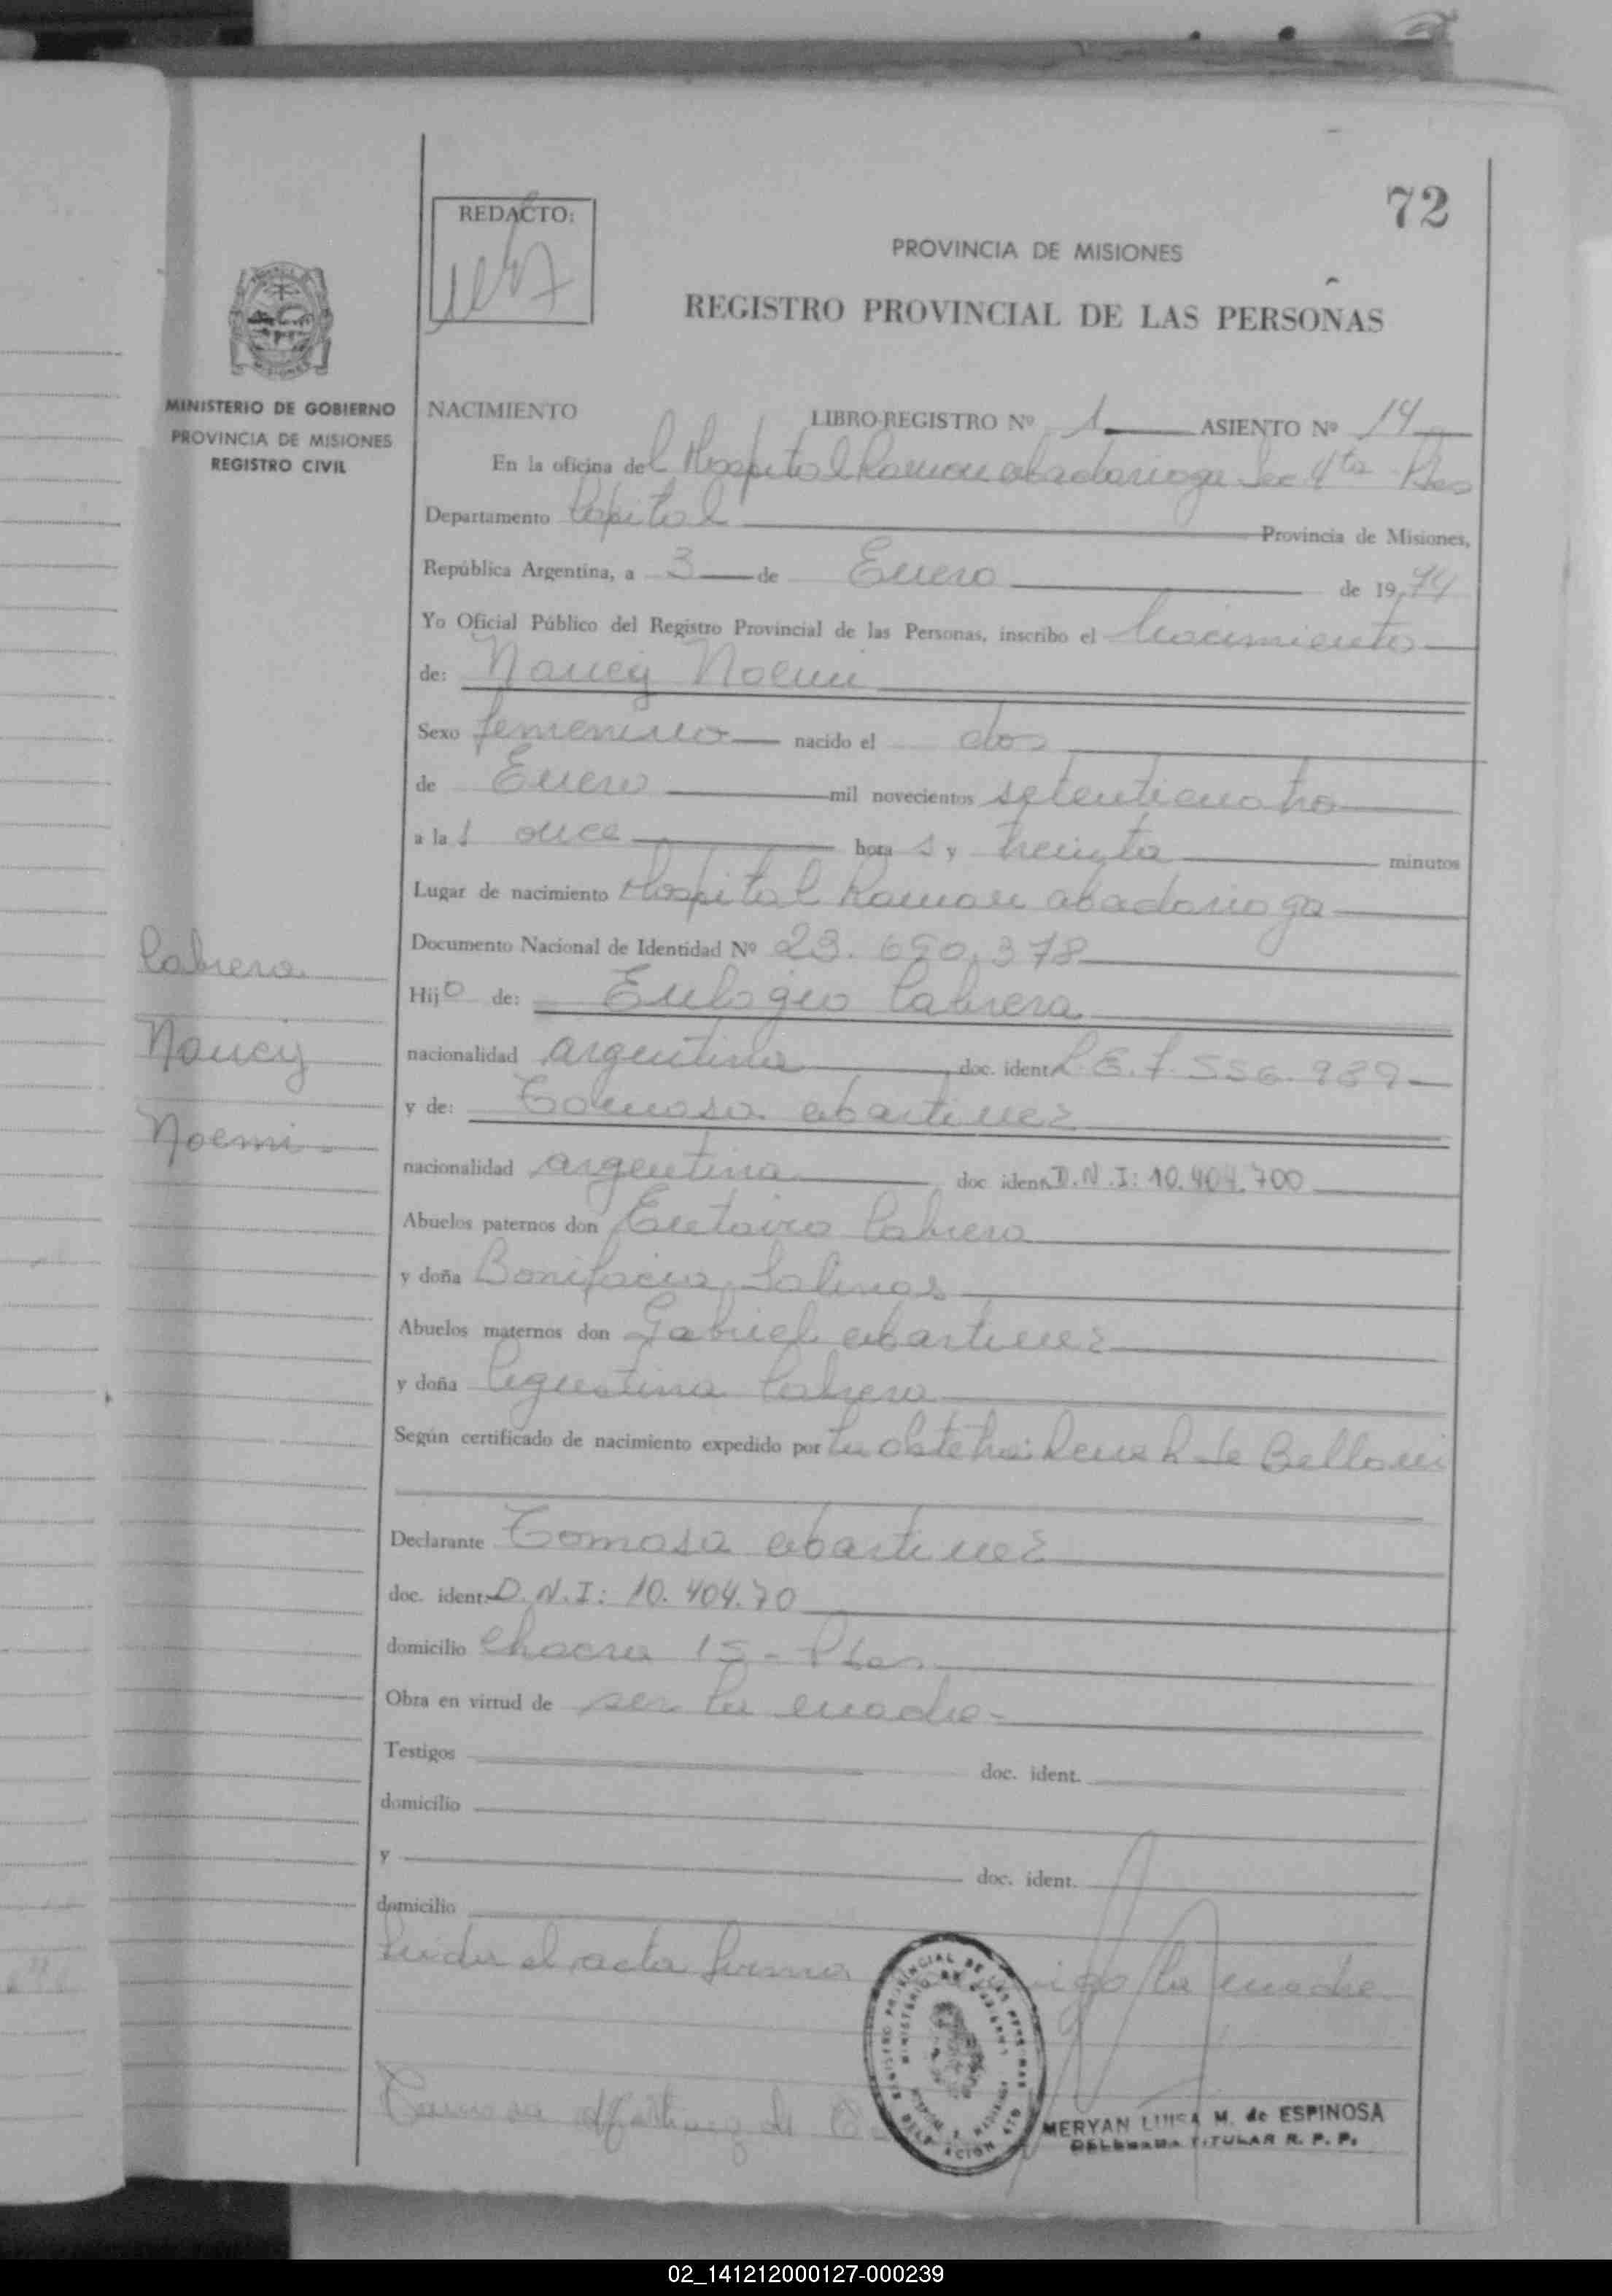 72
REDACTO:
PROVINCIA DE MISIONES
REGISTRO PROVINCIAL DE LAS PERSONAS
MINISTERIO DE GOBIERNO
PROVINCIA DE MISIONES
REGISTRO CIVIL
NACIMIENTO LIBRO-REGISTRO Nº 1 ASIENTO Nº 14
En la oficina del Hospital Ramon Madariaga Sec 4ta Pdas
Departamento Capital Provincia de Misiones,
República Argentina, a 3 de Enero de 1974
Yo Oficial Público del Registro Provincial de las Personas, inscribo el Nacimiento
de: Nancy Noemi
Sexo femenino nacido el dos
de Enero mil novecientos setenticuatro
a las once horas y treinta minutos
Lugar de nacimiento Hospital Ramon Madariaga
Documento Nacional de Identidad Nº 23.690.378
Cabrera
Nancy
Noemi
Hijo de: Eulogio Cabrera
nacionalidad argentina doc. ident. L.E.7.556.989
y de: Tomasa Martinez
nacionalidad argentina doc ident. D.N.I: 10.404.700
Abuelos paternos don Cabrera
y doña Bonifacia Salinas
Abuelos maternos don Gabriel Martinez
y doña Agustina Cabrera
Según certificado de nacimiento expedido por la obstetra: de Belloni
Declarante Tomasa Martinez
doc. ident. D.N.I: 10.404.70
domicilio Chacra 15 - Pdas
Obra en virtud de ser la madre
Testigos doc. ident.
domicilio
y doc. ident.
domicilio
Leida el acta firma la madre
Tomasa Martinez de
MERYAN LUISA M. de ESPINOSA
DELEGADA TITULAR R. P. P.
02_141212000127-000239